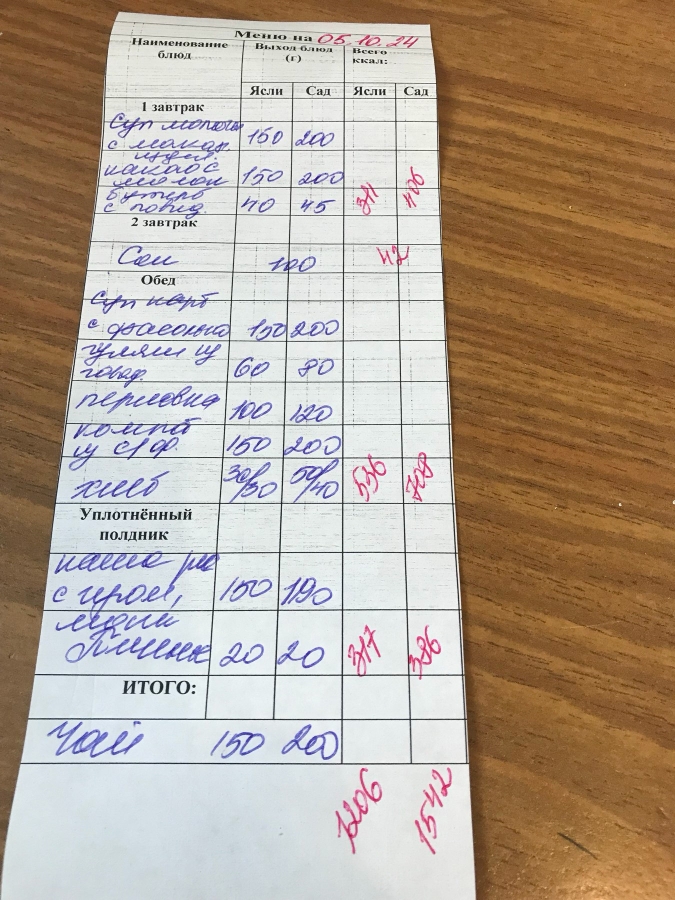 Меню на 05.10.24
Наименование блюд Выход блюд (г) Всего ккал:
Ясли Сад Ясли Сад
1 завтрак
Суп молочн
с макар. 150 200
изд.
какао с
молок 150 200
бутерб
с повид. 40 45 311 406
2 завтрак
Сок 100 42
Обед
Суп карт
с фасолью 150 200
гуляш из
говяд. 60 80
перловка 100 120
компот
из с/ф. 150 200
хлеб 30/30 50/40 536 708
Уплотнённый
полдник
каша
с 150 190
20 20 317 386
ИТОГО:
Чай 150 200
1206 1542